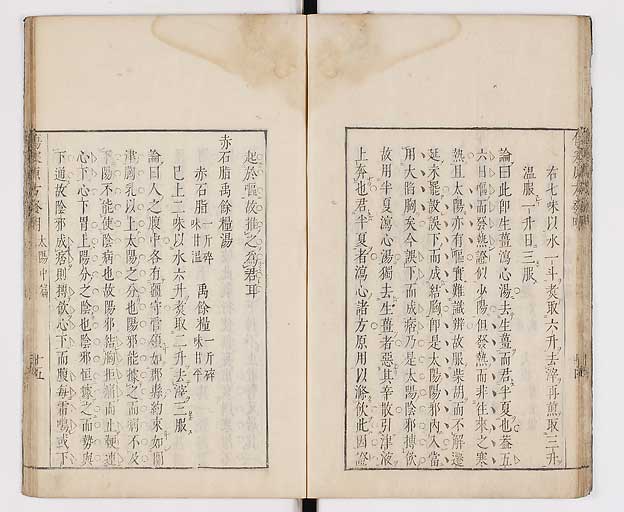 右七味以水一斗煮取六升去滓再煎取三升
溫服一升日三服
論曰此卽生薑瀉心湯去生薑而君半夏也蓋五
六日嘔而發熱證似少陽但發熱而非往來之寒
熱且太陽亦有嘔實難識辨故服柴胡而不解遷
延未罷設誤下而成結胸卽是太陽陽邪內入當
用大陷胸矣今誤下而成痞乃是太陽陰邪搏飲
故用半夏瀉心湯獨去生薑者惡其辛散引津液
上奔也君半夏者瀉心諸方原用以滌飲此因證
起於嘔故推之爲君耳
赤石脂禹餘糧湯
赤石脂一斤碎味甘溫 禹餘糧一斤碎味甘平
已上二味以水六升煮取二升去滓三服
論曰人之腹中各有疆守當領如郡縣約束如關
津膈乳以上太陽之分也陽邪能據之而病不及
陽不能使陰病也故陽邪結胸拒痛而止輒連
心下心下胃上陽分之陰也陰邪恒據之而勢與
下通故陰邪成痞則搏飲心下而腹每雷鳴或下
太陽中篇